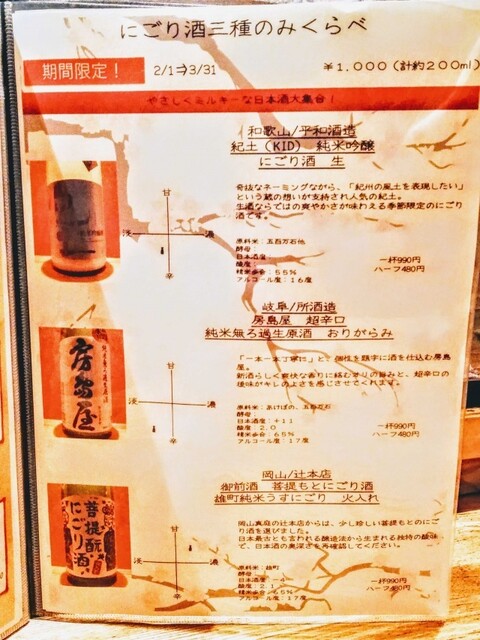 にごり酒三種のみくらべ
期間限定！ 2/1⇒3/31 ￥1,000（計約200ml）
やさしくミルキーな日本酒大集合！
和歌山/平和酒造
紀土（KID） 純米吟醸
にごり酒 生
奇抜なネーミングながら、「紀州の風土を表現したい」
という蔵の想いが支持され人気の紀土。
生酒ならではの爽やかさが味わえる季節限定のにごり
酒です。
甘
淡 濃
辛
原料米：五百万石他
酵母：
日本酒度：
酸度：
精米歩合：55％
アルコール度：16度
一杯990円
ハーフ480円
岐阜/所酒造
房島屋 超辛口
純米無ろ過生原酒 おりがらみ
「一本一本丁寧に」と、個性を題字に酒を仕込む房島
屋。
新酒らしく爽快な香りに絡むオリの旨みと、超辛口の
後味がキレのよさを感じさせてくれます。
房島屋
甘
淡 濃
辛
原料米：あけぼの、五百万石
酵母：
日本酒度：+11
酸度：2.0
精米歩合：65％
アルコール度：17度
一杯990円
ハーフ480円
岡山/辻本店
御前酒 菩提もとにごり酒
雄町純米うすにごり 火入れ
岡山真庭の辻本店からは、少し珍しい菩提もとのにご
り酒を選びました。
日本最古とも言われる醸造法から生まれる独特の酸味
で、日本酒の奥深さを再確認してください。
菩提酛
にごり酒
甘
淡 濃
辛
原料米：雄町
酵母：
日本酒度：
酸度：
精米歩合：65％
アルコール度：17度
一杯990円
ハーフ480円